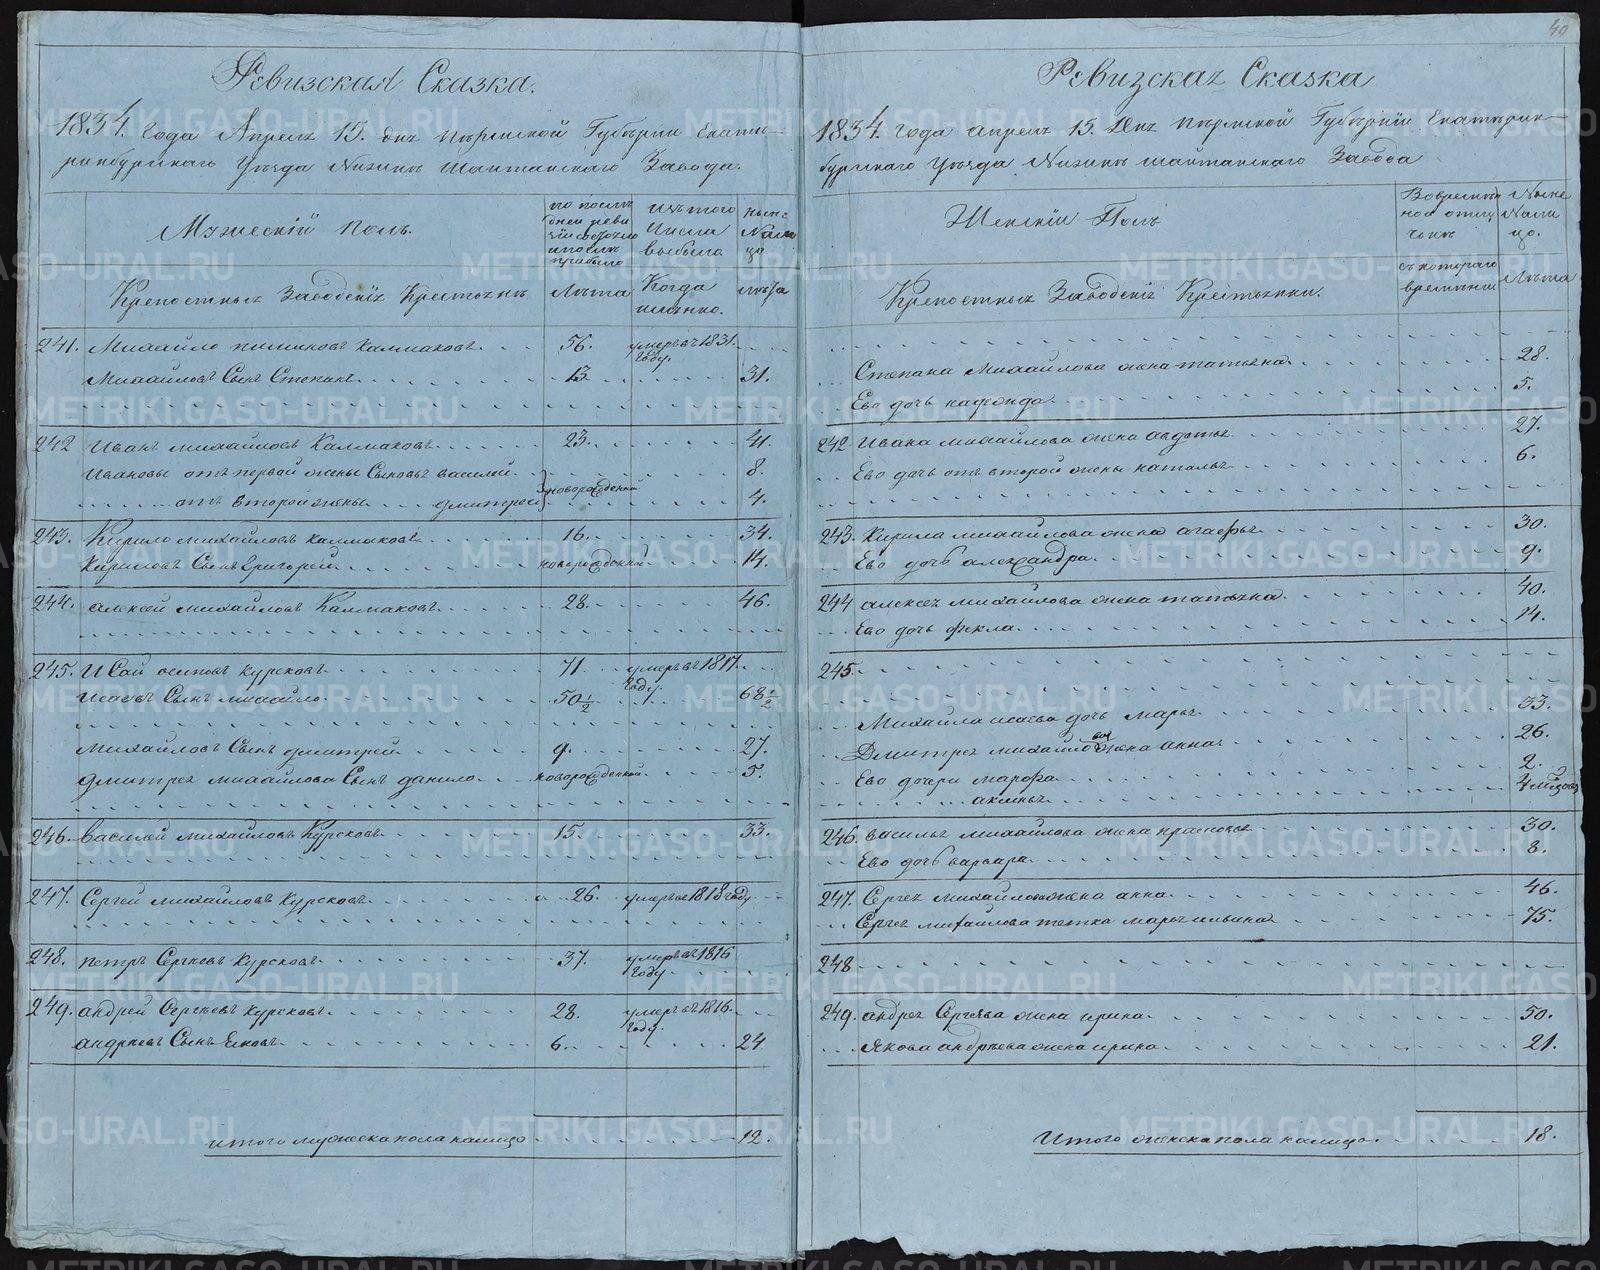 40
Ревизская Сказка.
1834. года Апреля 15. дня Пермской Губернии Екате-
ринбургскаго Уезда Нижне шайтанскаго Завода.
Мужеский полъ.
по послед
ней реви
зии состояло
и после
прибыло
изъ того
числа
выбыло.
ныне
Нали
цо
Крепостныхъ Заводскихъ Крестьянъ
Лета
Когда
именно.
лета
241. Михайло Калмаковъ 56. умеръ въ 1831. году.
Михайловъ Сынъ Степанъ 13 31.
242 Иванъ михайловъ Калмаковъ 23. 41.
Ивановы отъ первой жены Сыновья василей 8.
отъ второй жены дмитрей новорожденной 4.
243. Кирило михайловъ калмаковъ 16. 34.
Кириловъ Сынъ григорей новорожденной 14.
244. алексей михайловъ Калмаковъ 28. 46.
245. Исай осиповъ курсковъ 71 умеръ въ 1817. году.
исаевъ Сынъ михайло 50 1/2 68 1/2
Михайловъ Сынъ дмитрей 9. 27.
дмитрея михайлова Сынъ данило новорожденной 5.
246. василей михайловъ Курсковъ 15. 33.
247. Сергей михайловъ Курсковъ 26. умеръ въ 1818 году
248. петръ Сергеевъ Курсковъ 37. умеръ въ 1816 году
249. андрей Сергеевъ курсковъ 28. умеръ въ 1816. году.
андреевъ Сынъ Яковъ 6. 24
итого мужеска пола налицо 12.
Ревизская Сказка
1834. года апреля 15. Дня пермской Губернии Екатерин-
бургскаго Уезда Нижне шайтанскаго Завода
Женский Полъ
Во времян
ной отлу
чьке
Ныне
Нали
цо.
Крепостныхъ Заводский Крестьянки.
съ котораго
времяни
Лета
Степана Михайлова жена татьяна 28.
Ево дочь 5.
242 Ивана михайлова жена авдотья 27.
Ево дочь отъ второй жены наталья 6.
243. Кирила михайлова жена агафья 30.
Ево дочь александра 9.
244 алексея михайлова жена татьяна 40.
Ево дочь фекла 14.
245
Михайла исаева дочь марья 33.
Дмитрея михайлова жена анна 26.
Ево дочери марфа 2.
акинья 4 месяцовъ
246. василья михайлова жена прасковья 30.
Ево дочь варвара 8.
247. Сергея михайлова жена анна 46.
Сергея михайлова тетка марья ильина 75.
248
249. андрея Сергеева жена ирина 50.
Якова андреева жена ирина 21.
Итого женска пола налицо 18.
METRIKI.GASO-URAL.RU